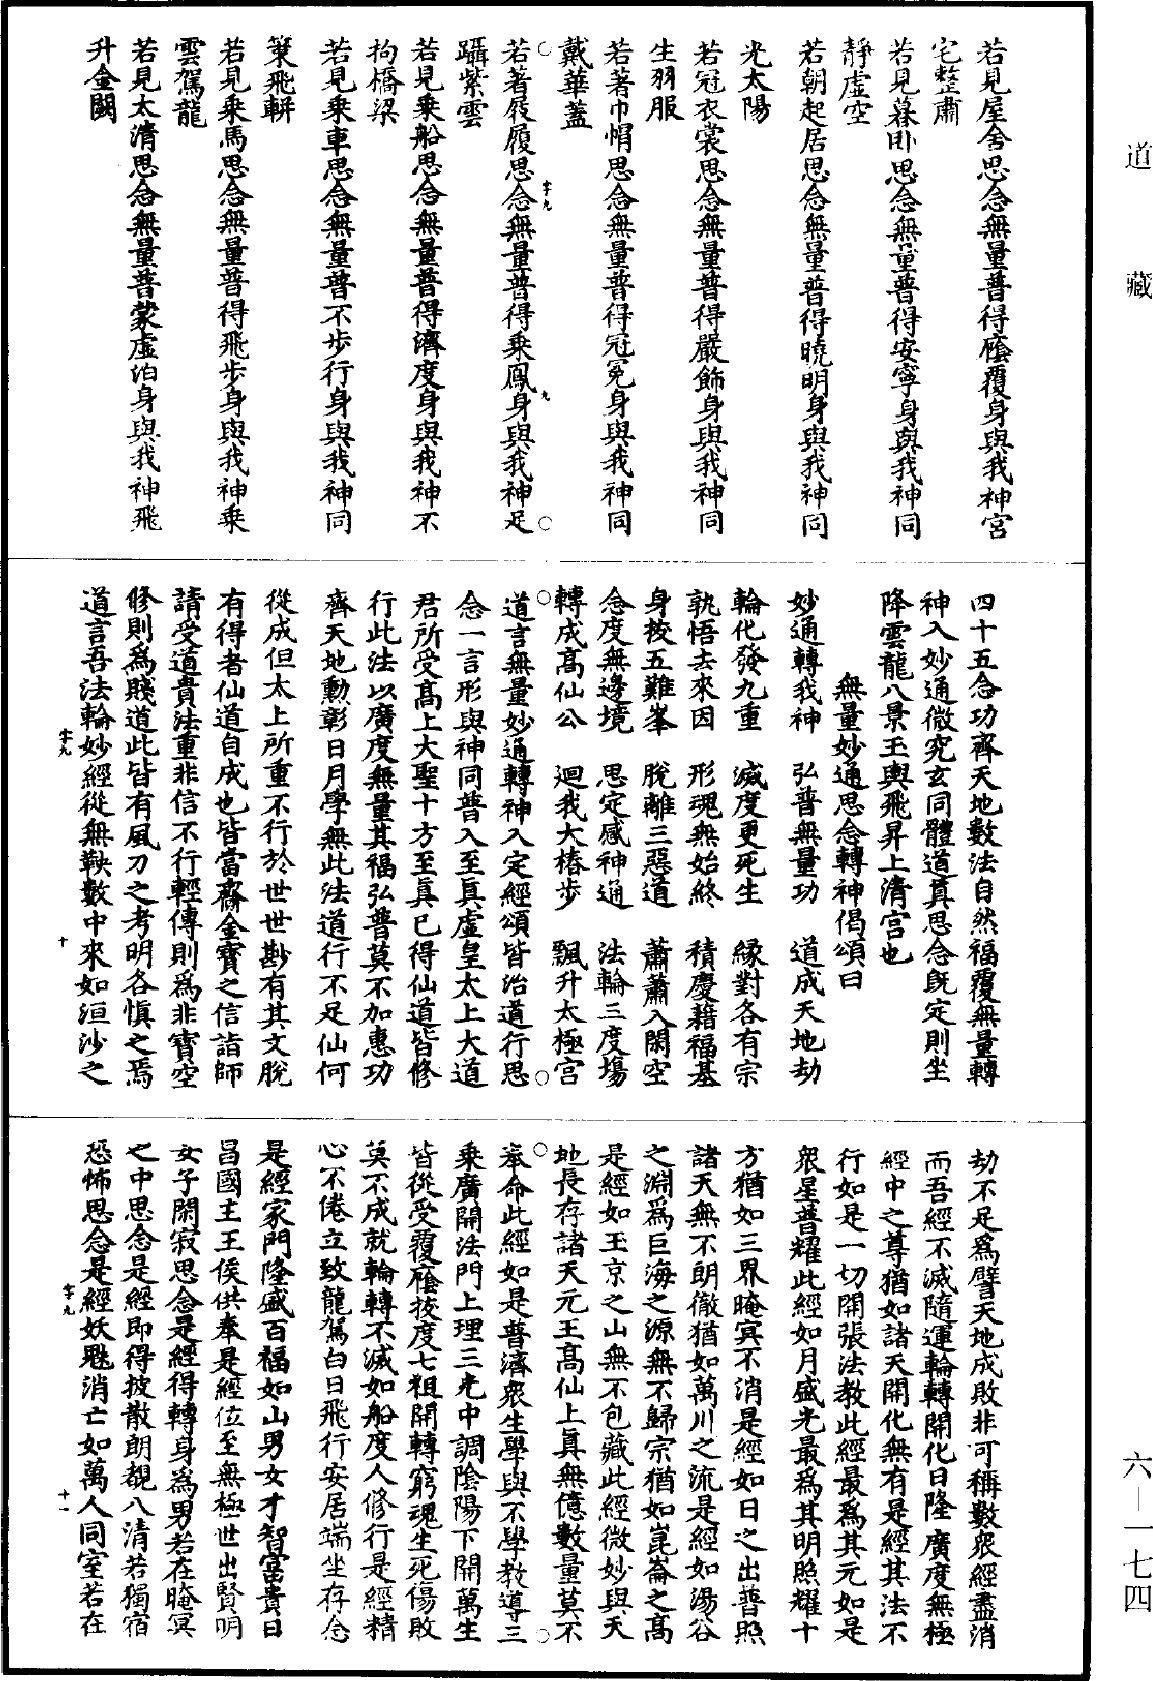 道藏
若見屋舍思念無量普得廕覆身與我神宮
宅整肅
若見暮卧思念無量普得安寧身與我神同
靜虛空
若朝起居思念無量普得曉明身與我神同
光太陽
若冠衣裳思念無量普得嚴飾身與我神同
生羽服
若著巾帽思念無量普得冠冕身與我神同
戴華蓋
若著屐履思念無量普得乘鳳身與我神足
躡紫雲
若見乘船思念無量普得濟度身與我神不
拘橋梁
若見乘車思念無量普不步行身與我神同
乘飛軿
若見乘馬思念無量普得飛步身與我神乘
雲駕龍
若見太清思念無量普蒙虛泊身與我神飛
升金闕
字九
九
四十五念功齊天地數法自然福覆無量轉
神入妙通微究玄同體道真思念旣定則坐
降雲龍八景玉輿飛昇上清宮也
無量妙通思念轉神偈頌曰
妙通轉我神 弘普無量功 道成天地劫
輪化發九重 滅度更死生 緣對各有宗
孰悟去來因 形魂無始終 積慶藉福基
身挍五難峯 脫離三惡道 蕭蕭入閑空
念度無邊境 思定感神通 法輪三度場
轉成高仙公 迴我大椿步 飄升太極宮
道言無量妙通轉神入定經頌皆治道行思
念一言形與神同普入至真虛皇太上大道
君所受高上大聖十方至真已得仙道皆修
行此法以廣度無量其福弘普莫不加惠功
齊天地勳彰日月學無此法道行不足仙何
從成但太上所重不行於世世尠有其文脫
有得者仙道自成也皆當齎金寶之信詣師
請受道貴法重非信不行輕傳則爲非寶空
修則爲賤道此皆有風刀之考明各愼之焉
道言吾法輪妙經從無鞅數中來如洹沙之
字九
十
劫不足爲譬天地成敗非可稱數衆經盡消
而吾經不滅隨運輪轉開化日隆廣度無極
經中之尊猶如諸天開化無有是經其法不
行如是一切開張法教此經最爲其元如是
衆星普耀此經如月盛光最爲其明照耀十
方猶如三界晻冥不消是經如日之出普照
諸天無不朗徹猶如萬川之流是經如湯谷
之淵爲巨海之源無不歸宗猶如崑崙之高
是經如玉京之山無不包藏此經微妙與天
地長存諸天元王高仙上真無億數量莫不
奉命此經如是普濟衆生學與不學教導三
乘廣開法門上理三光中調陰陽下開萬生
皆從受覆廕拔度七祖開轉窮魂生死傷敗
莫不成就輪轉不滅如船度人修行是經精
心不倦立致龍駕白日飛行安居端坐存念
是經家門隆盛百福如山男女才智富貴日
昌國王王侯供奉是經位至無極世出賢明
女子閑寂思念是經得轉身為男若在晻冥
之中思念是經即得披散朗覩八清若獨宿
恐怖思念是經妖魅消亡如萬人同室若在
字九
十一
六—一七四